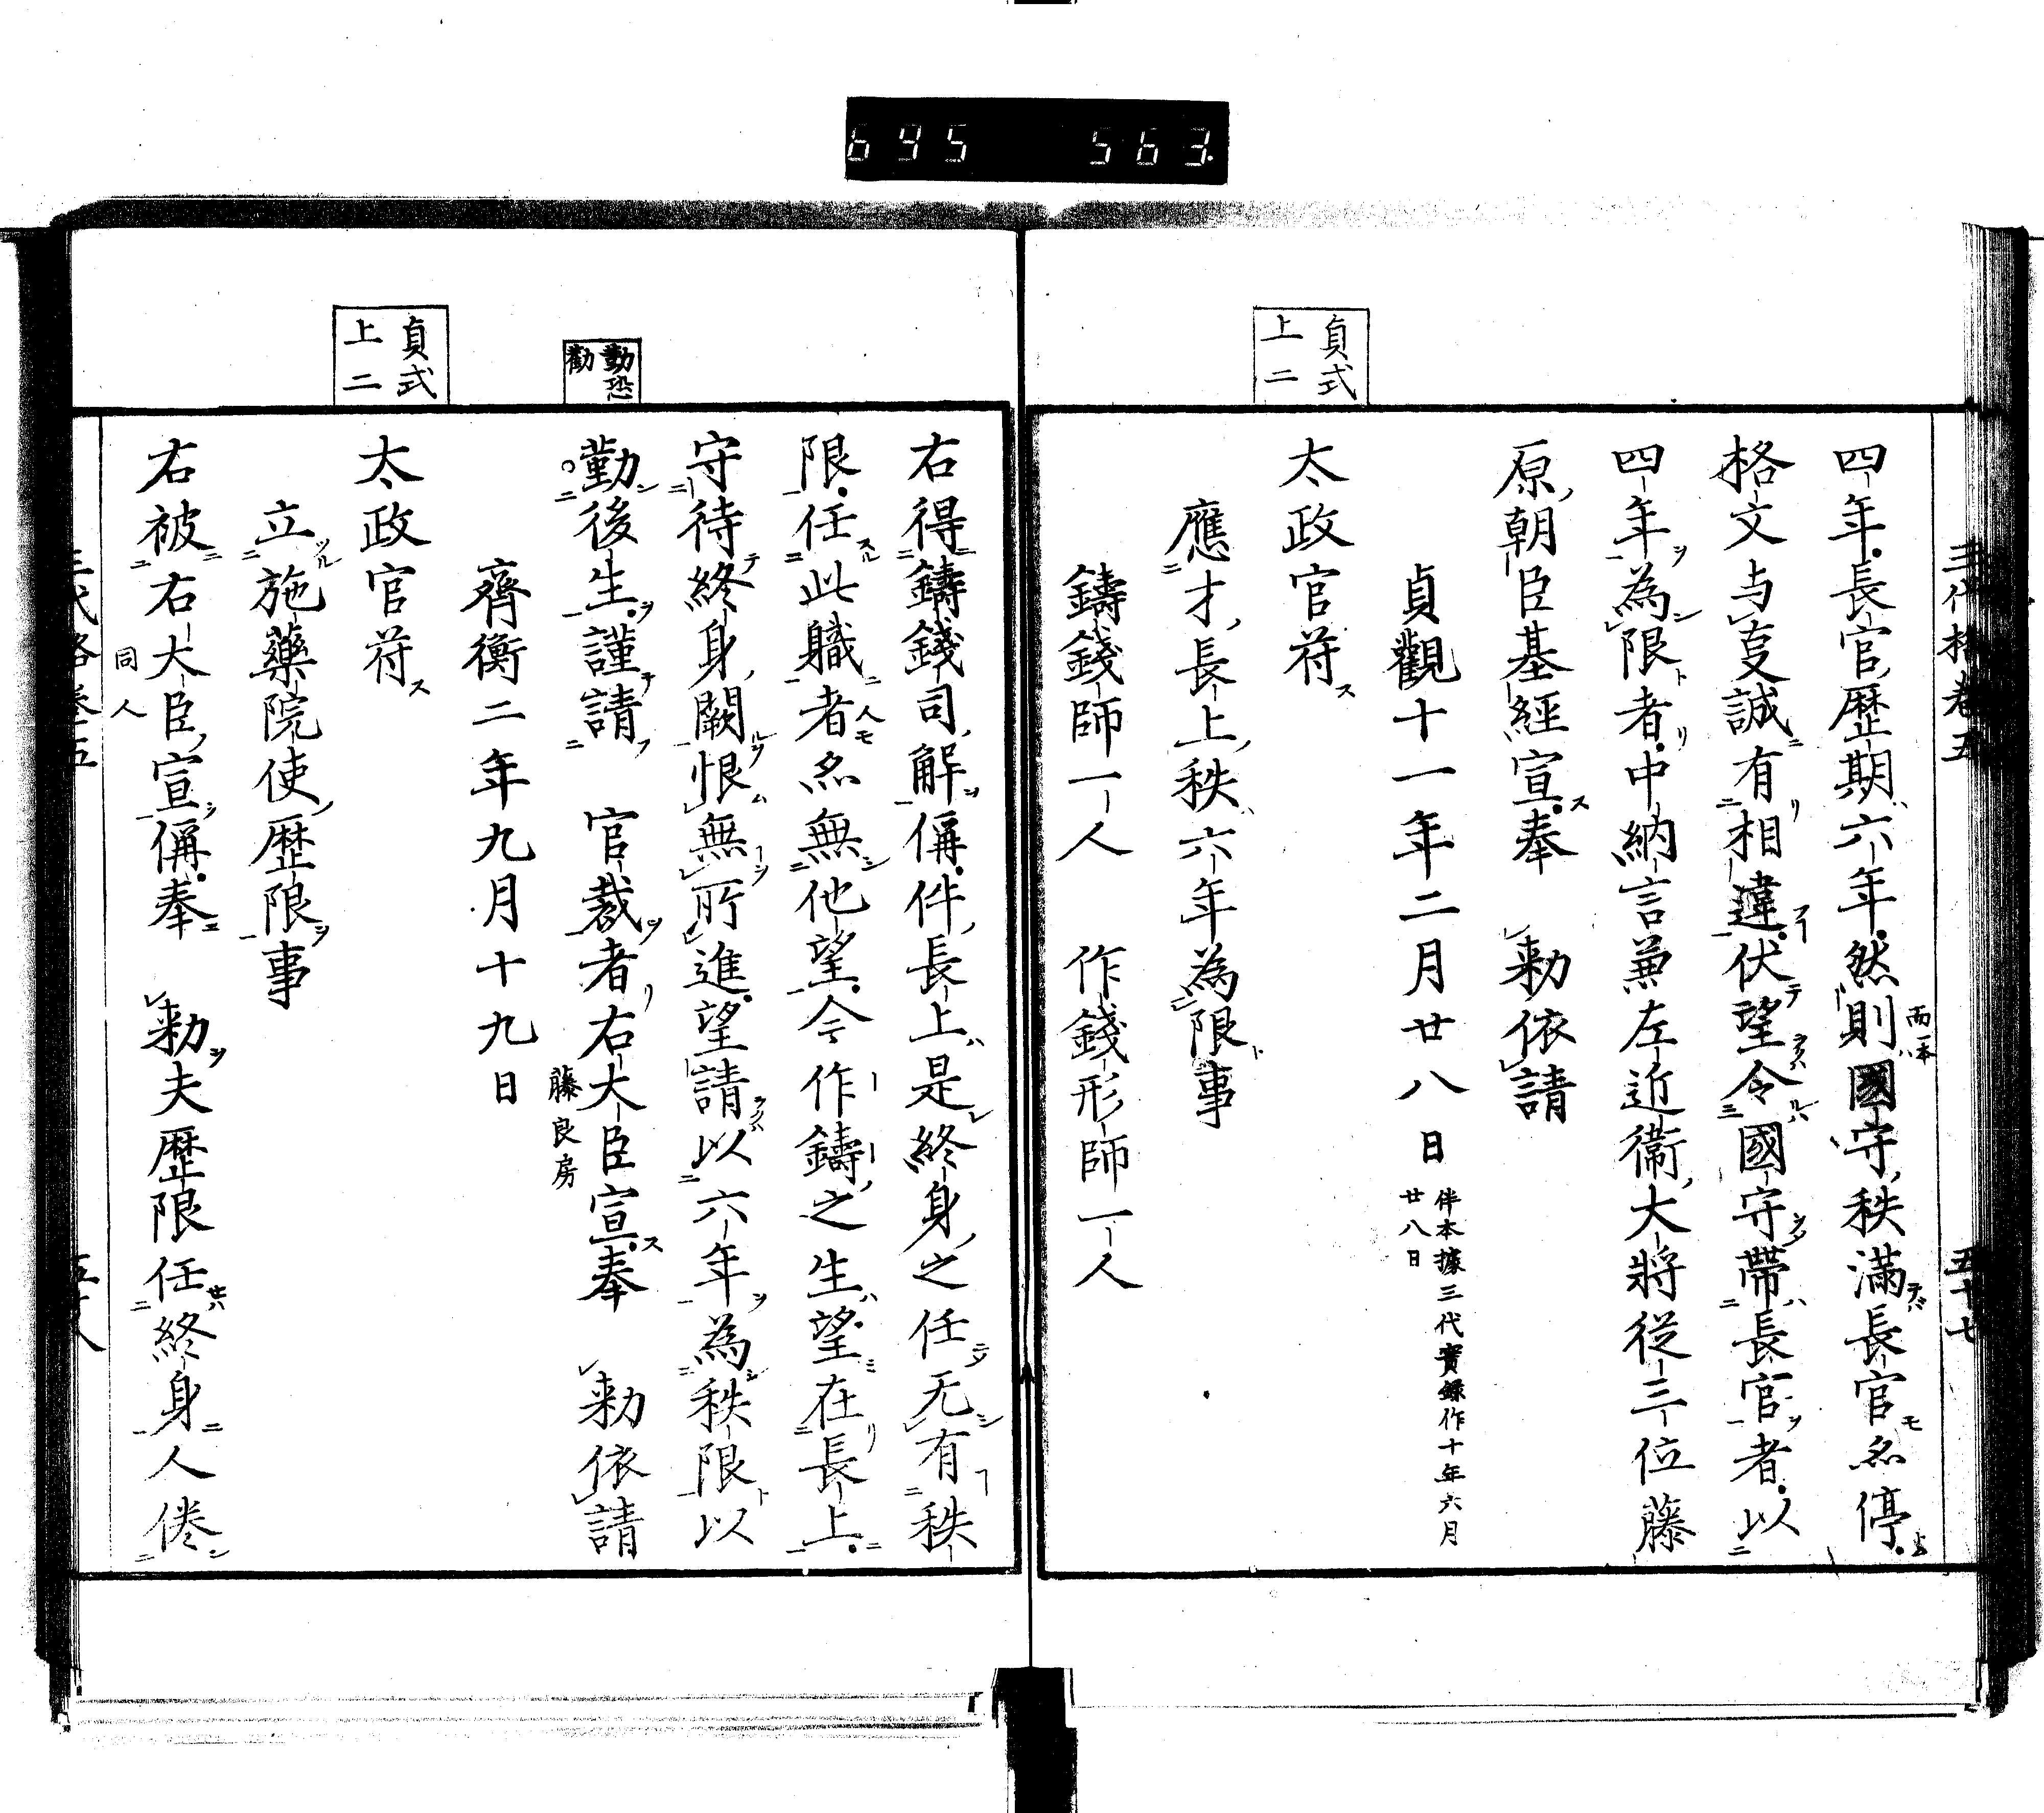 695 563.
三代格卷五 五十七
貞式
上二
四年長官歴期六年然則國守秩滿長官名停
而一本
格文与㕝誠有相違伏望令國守帶長官者以
四年為限者中納言兼左近衛大將従三位藤
原朝臣基經宣奉 勅依請
貞觀十一年二月廿八日
伴本據三代實録作十年六月
廿八日
太政官符ス
應才長上秩六年為限事
鑄錢師一人 作錢形師一人
勤恐
勸
貞式
上二
右得鑄錢司解偁件長上是終身之任无有秩
限任此職者亦無他望今作鑄之生望在長上
守待終身闕恨無所進望請以六年為秩限以
勤後生謹請 官裁者右大臣宣奉 勅依請
藤良房
齊衡二年九月十九日
太政官符ス
立施藥院使歴限事
右被右大臣宣偁奉 勅夫歴限任終身人倦
同人